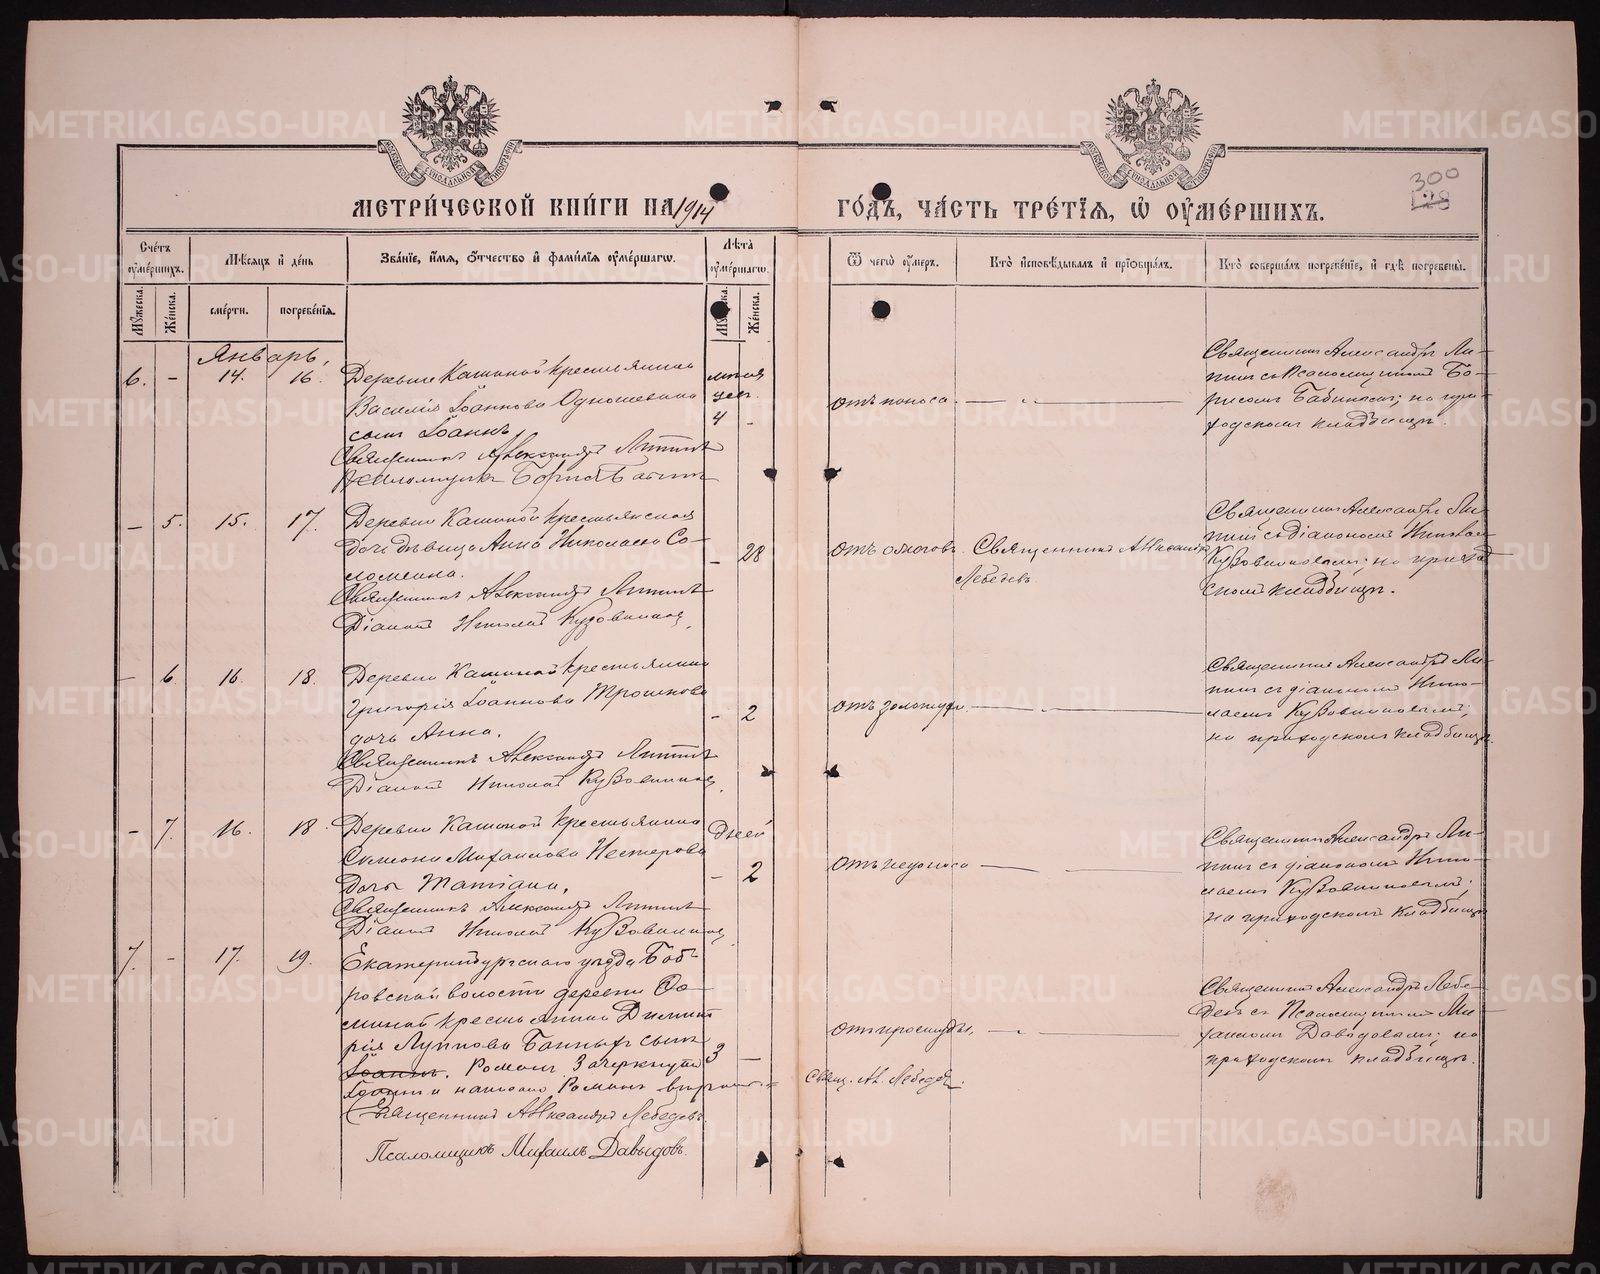 300
128
МЕТРИ́ЧЕСКОЙ КНИ́ГИ НА 1914
ГО́ДЪ, ЧА́СТЬ ТРЕ́ТІЯ, Ѡ҆ ОУ҆МЕ́РШИХЪ.
Сче́тъ оу҆ме́ршихъ.
Мѣ́сяцъ и҆ де́нь
Зва́ніе, и҆́мя, ѻ҆́тчество и҆ фами́лія оу҆ме́ршагѡ.
Лѣ́та оу҆ме́ршагѡ.
Ѿ чегѡ̀ оу҆́меръ.
Кто̀ и҆сповѣ́дывалъ и҆ пріѡбща́лъ.
Кто̀ соверша́лъ погребе́ніе, и҆ гдѣ̀ погребены̀.
Мꙋ́жеска.
Же́нска.
сме́рти.
погребе́нія.
Же́нска.
Январь.
6. - 14. 16.
Деревни Кашиной крестьянина
Василія Іоаннова
сынъ Іоаннъ
Священникъ Александръ
Псаломщикъ Борисъ Бабинъ
4 -
отъ поноса.
Священникъ Александръ
съ Псаломщикомъ Бо-
рисомъ Бабинымъ; на при-
ходскомъ кладбищѣ.
- 5. 15. 17.
Деревни Кашиной крестьянская
дочь дѣвица Анна Николаева Со-
ломеина.
Священникъ Александръ
Діаконъ Николай Кузовниковъ
- 28
отъ ожоговъ.
Священникъ Александръ
Лебедевъ.
Священникъ Александръ
съ діакономъ Николаемъ
Кузовниковымъ; на приход-
скомъ кладбищѣ.
- 6. 16. 18.
Деревни Кашиной крестьянина
Григорія Іоаннова Трошкова
дочь Анна.
Священникъ Александръ
Діаконъ Николай Кузовниковъ
- 2
отъ золотухи.
Священникъ Александръ
съ діакономъ Нико-
лаемъ Кузовниковымъ;
на приходскомъ кладбищѣ.
- 7. 16. 18.
Деревни Кашиной крестьянина
Симеона Михаилова Нестерова
дочь Татіана.
Священникъ Александръ
Діаконъ Николай Кузовниковъ
Дней
- 2
отъ недоноса
Священникъ Александръ
съ діакономъ Нико-
лаемъ Кузовниковымъ;
на приходскомъ кладбищѣ
7. - 17. 19.
Екатеринбургскаго уѣзда Боб-
ровской волости деревни Фо-
миной крестьянина Димит-
рія Луппова Банныхъ сынъ
Іоаннъ. Романъ. Зачеркнуто
Іоаннъ и написано Романъ
Священникъ Александръ Лебедевъ.
Псаломщикъ Михаилъ Давыдовъ.
3 -
отъ простуды.
Свящ. Ал. Лебедевъ.
Священникъ Александръ Лебе-
девъ съ Псаломщикомъ Ми-
хаиломъ Давыдовымъ; на
приходскомъ кладбищѣ.
METRIKI.GASO-URAL.RU